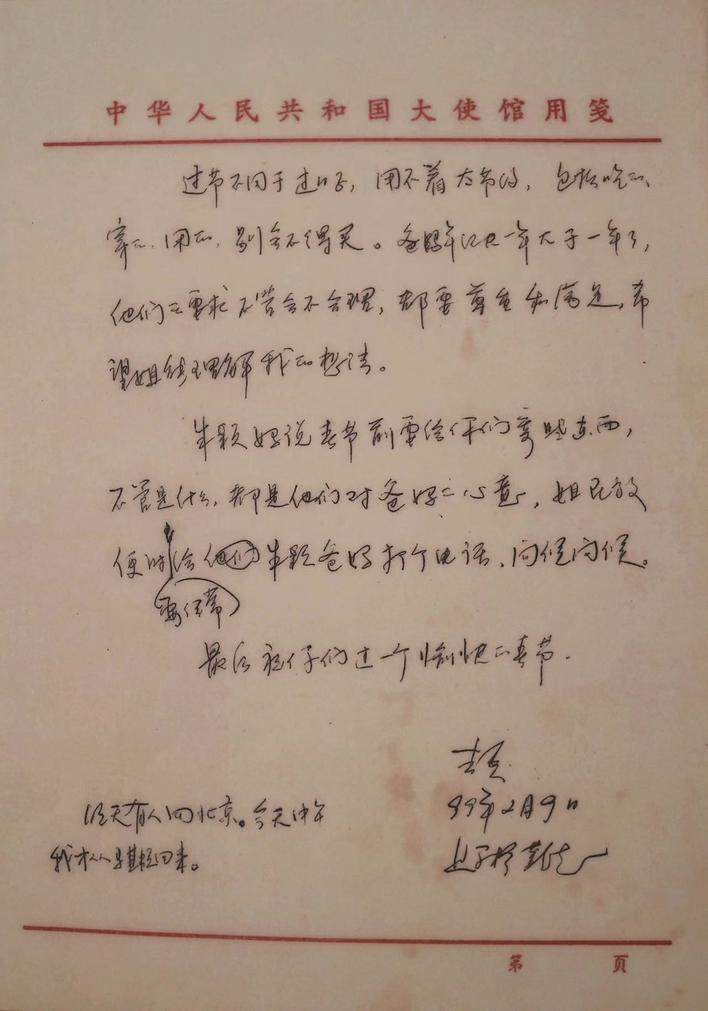 中华人民共和国大使馆用笺
过节不同于过日子，用不着太节约，包括吃的、
穿的、用的，别舍不得买。爸妈年纪也一年大于一年了，
他们的要求不管合不合理，都要尊重和满足，希
望姐能理解我的想法。
朱颖妈说春节前要给你们寄些东西，
不管是什么，都是他们对爸妈的心意，姐民放
便时给他们朱颖爸妈打个电话，问候问候。
要经常
最后祝你们过一个愉快的春节.
99年2月9日
明天有人回北京。今天中午
我才从回来。
第 页